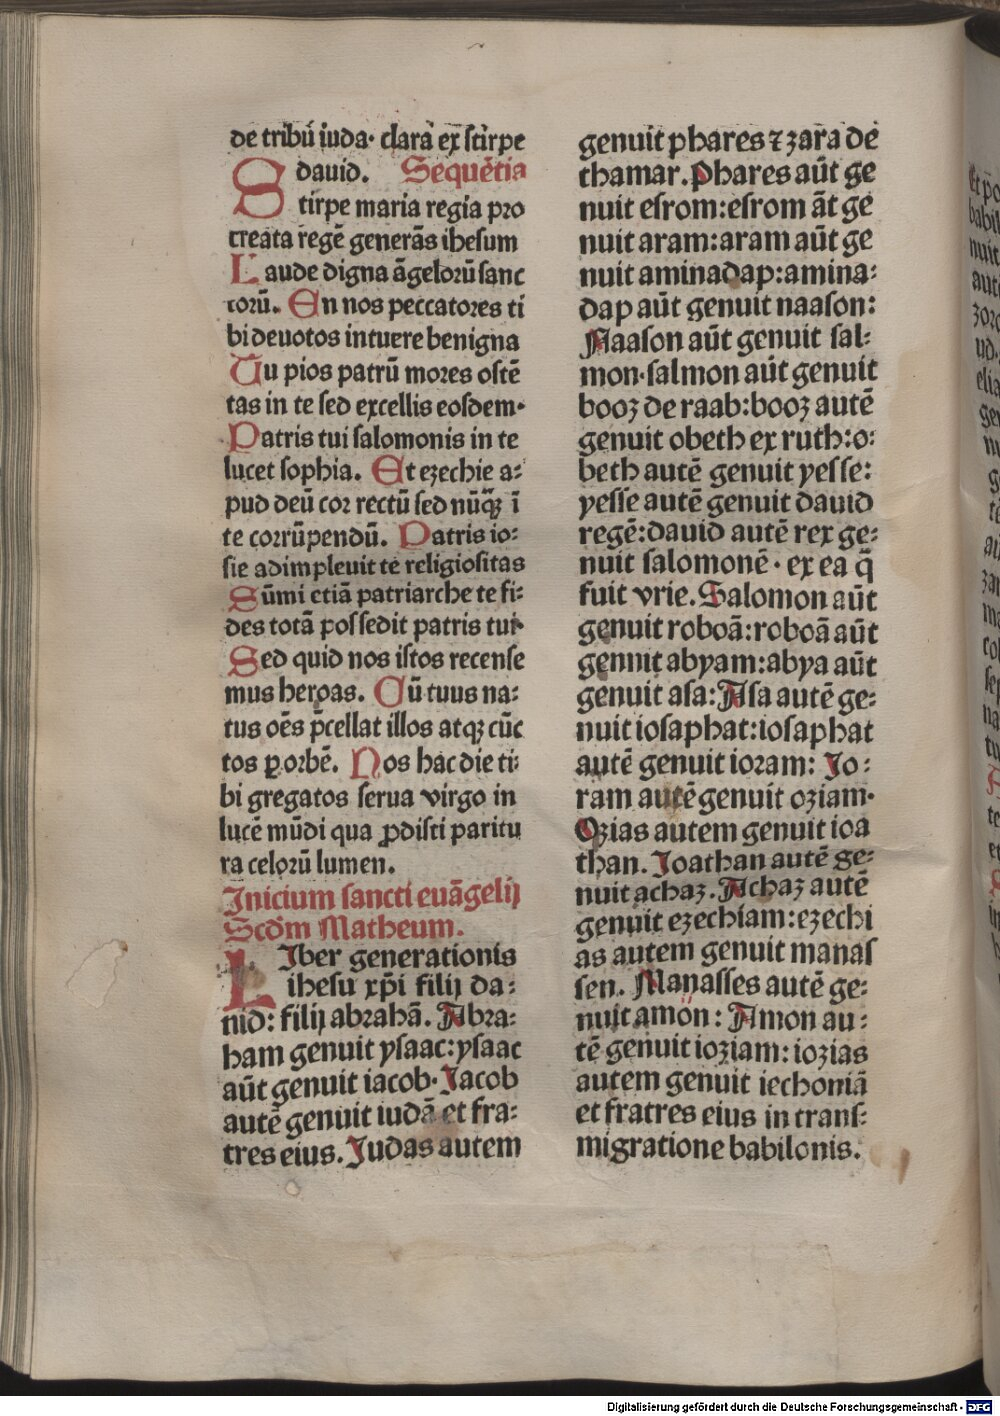 de tribu̅ iuda· clara ex stirpe
dauid. Seque̅tia
Stirpe maria regia pro
creata rege̅ genera̅s ihesum
Laude digna a̅geloru̅ sanc
toru̅. En nos peccatores ti
bi deuotos intuere benigna
Tu pios patru̅ mores oste̅
tas in te sed excellis eosdem·
Patris tui salomonis in te
lucet sophia. Et ezechie a⸗
pud deu̅ cor rectu̅ sed nu̅qꝫ i̅
te corru̅pendu̅. Patris io⸗
sie adimpleuit te religiositas
Su̅mi etia̅ patriarche te fi⸗
des tota̅ possedit patris tui·
Sed quid nos istos recense
mus heroas. Cu̅ tuus na⸗
tus oe̅s p̅cellat illos atqꝫ cu̅c
tos ꝑ orbe̅. Nos hac die ti⸗
bi gregatos serua virgo in
luce̅ mu̅di qua ꝓdisti paritu
ra celoru̅ lumen.
Inicium sancti eua̅gelij
Scd̅m Matheum.
LIber generationis
ihesu xp̅i filij da⸗
nid: filij abraha̅. Abra⸗
ham genuit ysaac: ysaac
au̅t genuit iacob· Jacob
aute̅ genuit iuda̅ et fra⸗
tres eius. Judas autem
genuit phares ⁊ zara de
thamar. Phares au̅t ge
nuit esrom: esrom a̅t ge
nuit aram: aram au̅t ge
nuit aminadap: amina⸗
dap au̅t genuit naason:
Naason au̅t genuit sal⸗
mon· salmon au̅t genuit
booz de raab: booz aute̅
genuit obeth ex ruth: o⸗
beth aute̅ genuit yesse:
yesse aute̅ genuit dauid
rege̅: dauid aute̅ rex ge⸗
nuit salomone̅· ex ea q̅
fuit vrie. Salomon au̅t
genuit roboa̅: roboa̅ au̅t
gennit abyam: abya au̅t
genuit asa: Asa aute̅ ge⸗
nuit iosaphat: iosaphat
aute̅ genuit ioram: Jo⸗
ram aute̅ genuit oziam·
Ozias autem genuit ioa
than. Joathan aute̅ ge⸗
nuit achaz. Achaz aute̅
genuit ezechiam: ezechi
as autem genuit manas
sen. Manasses aute̅ ge⸗
nuit amon: Amon au⸗
te̅ genuit ioziam: iozias
autem genuit iechonia̅
et fratres eius in trans⸗
migratione babilonis.
Digitalisierung gefördert durch die Deutsche Forschungsgemeinschaft - DFG